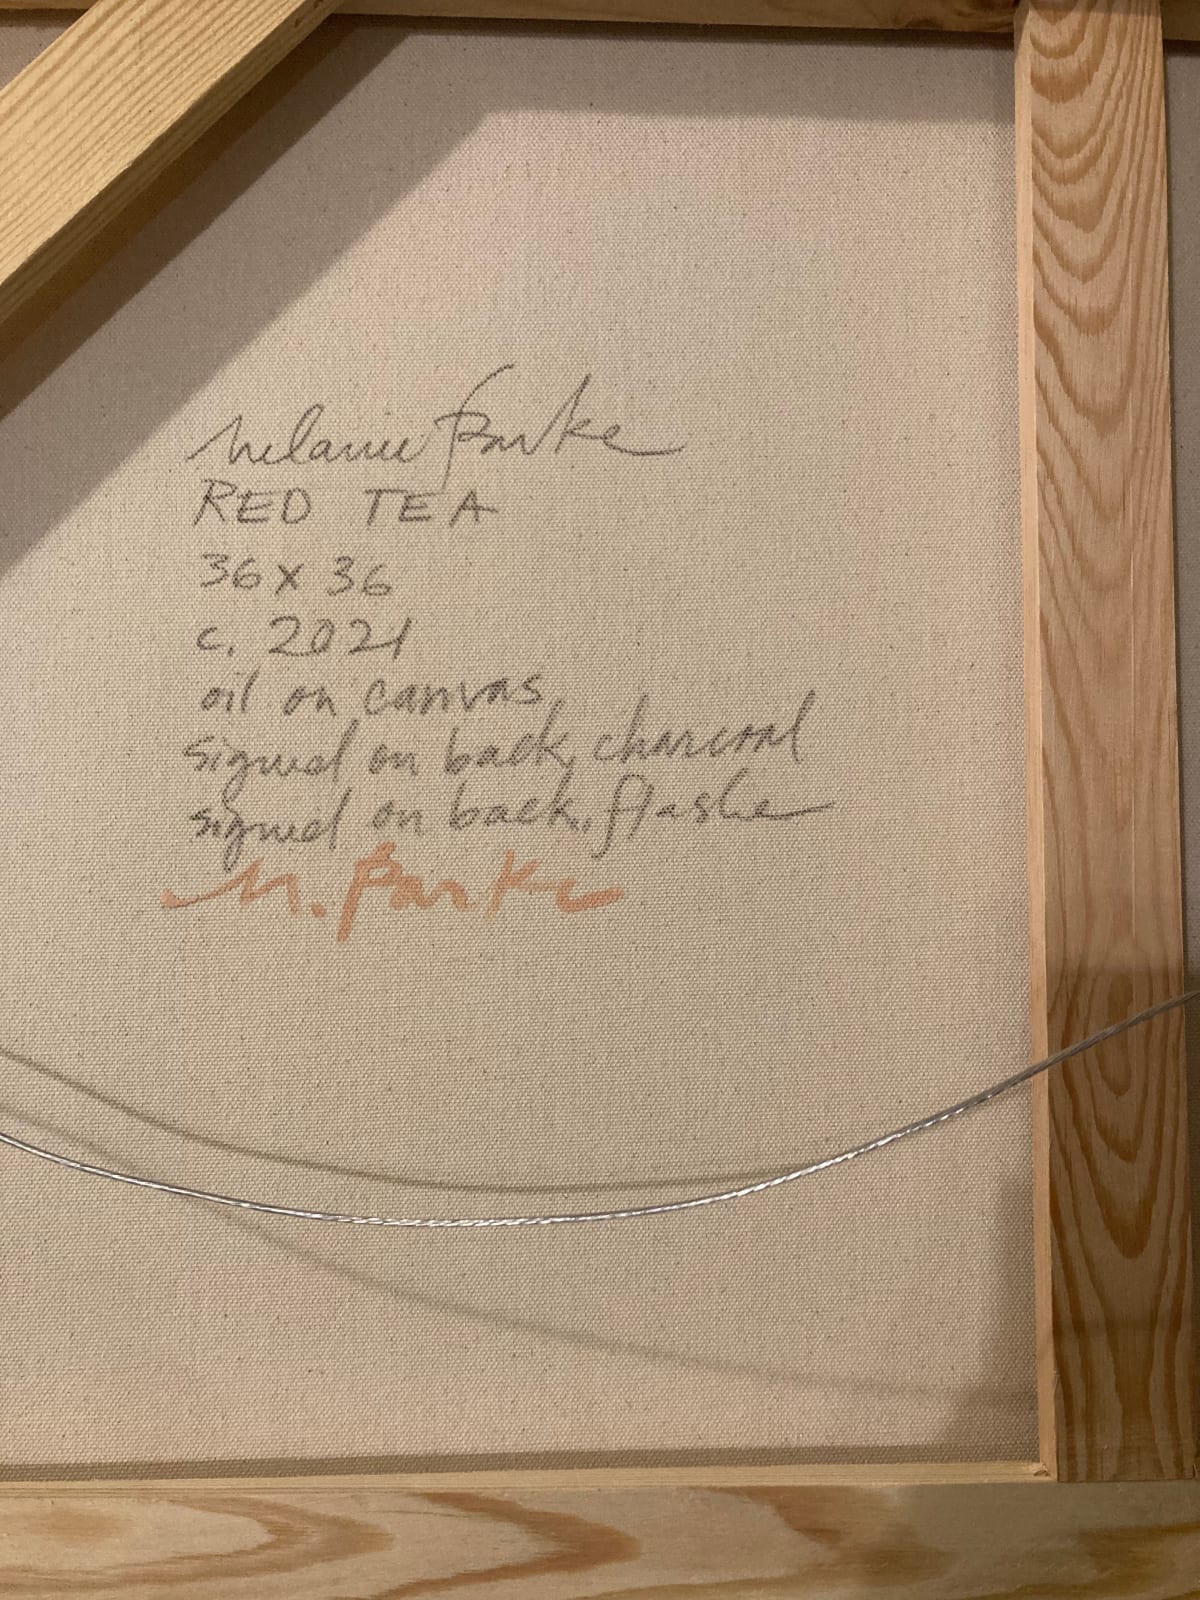 Melanie Parke
RED TEA
36 x 36
c. 2021
oil on canvas
signed on back, charcoal
signed on back, flashe
M. Parke